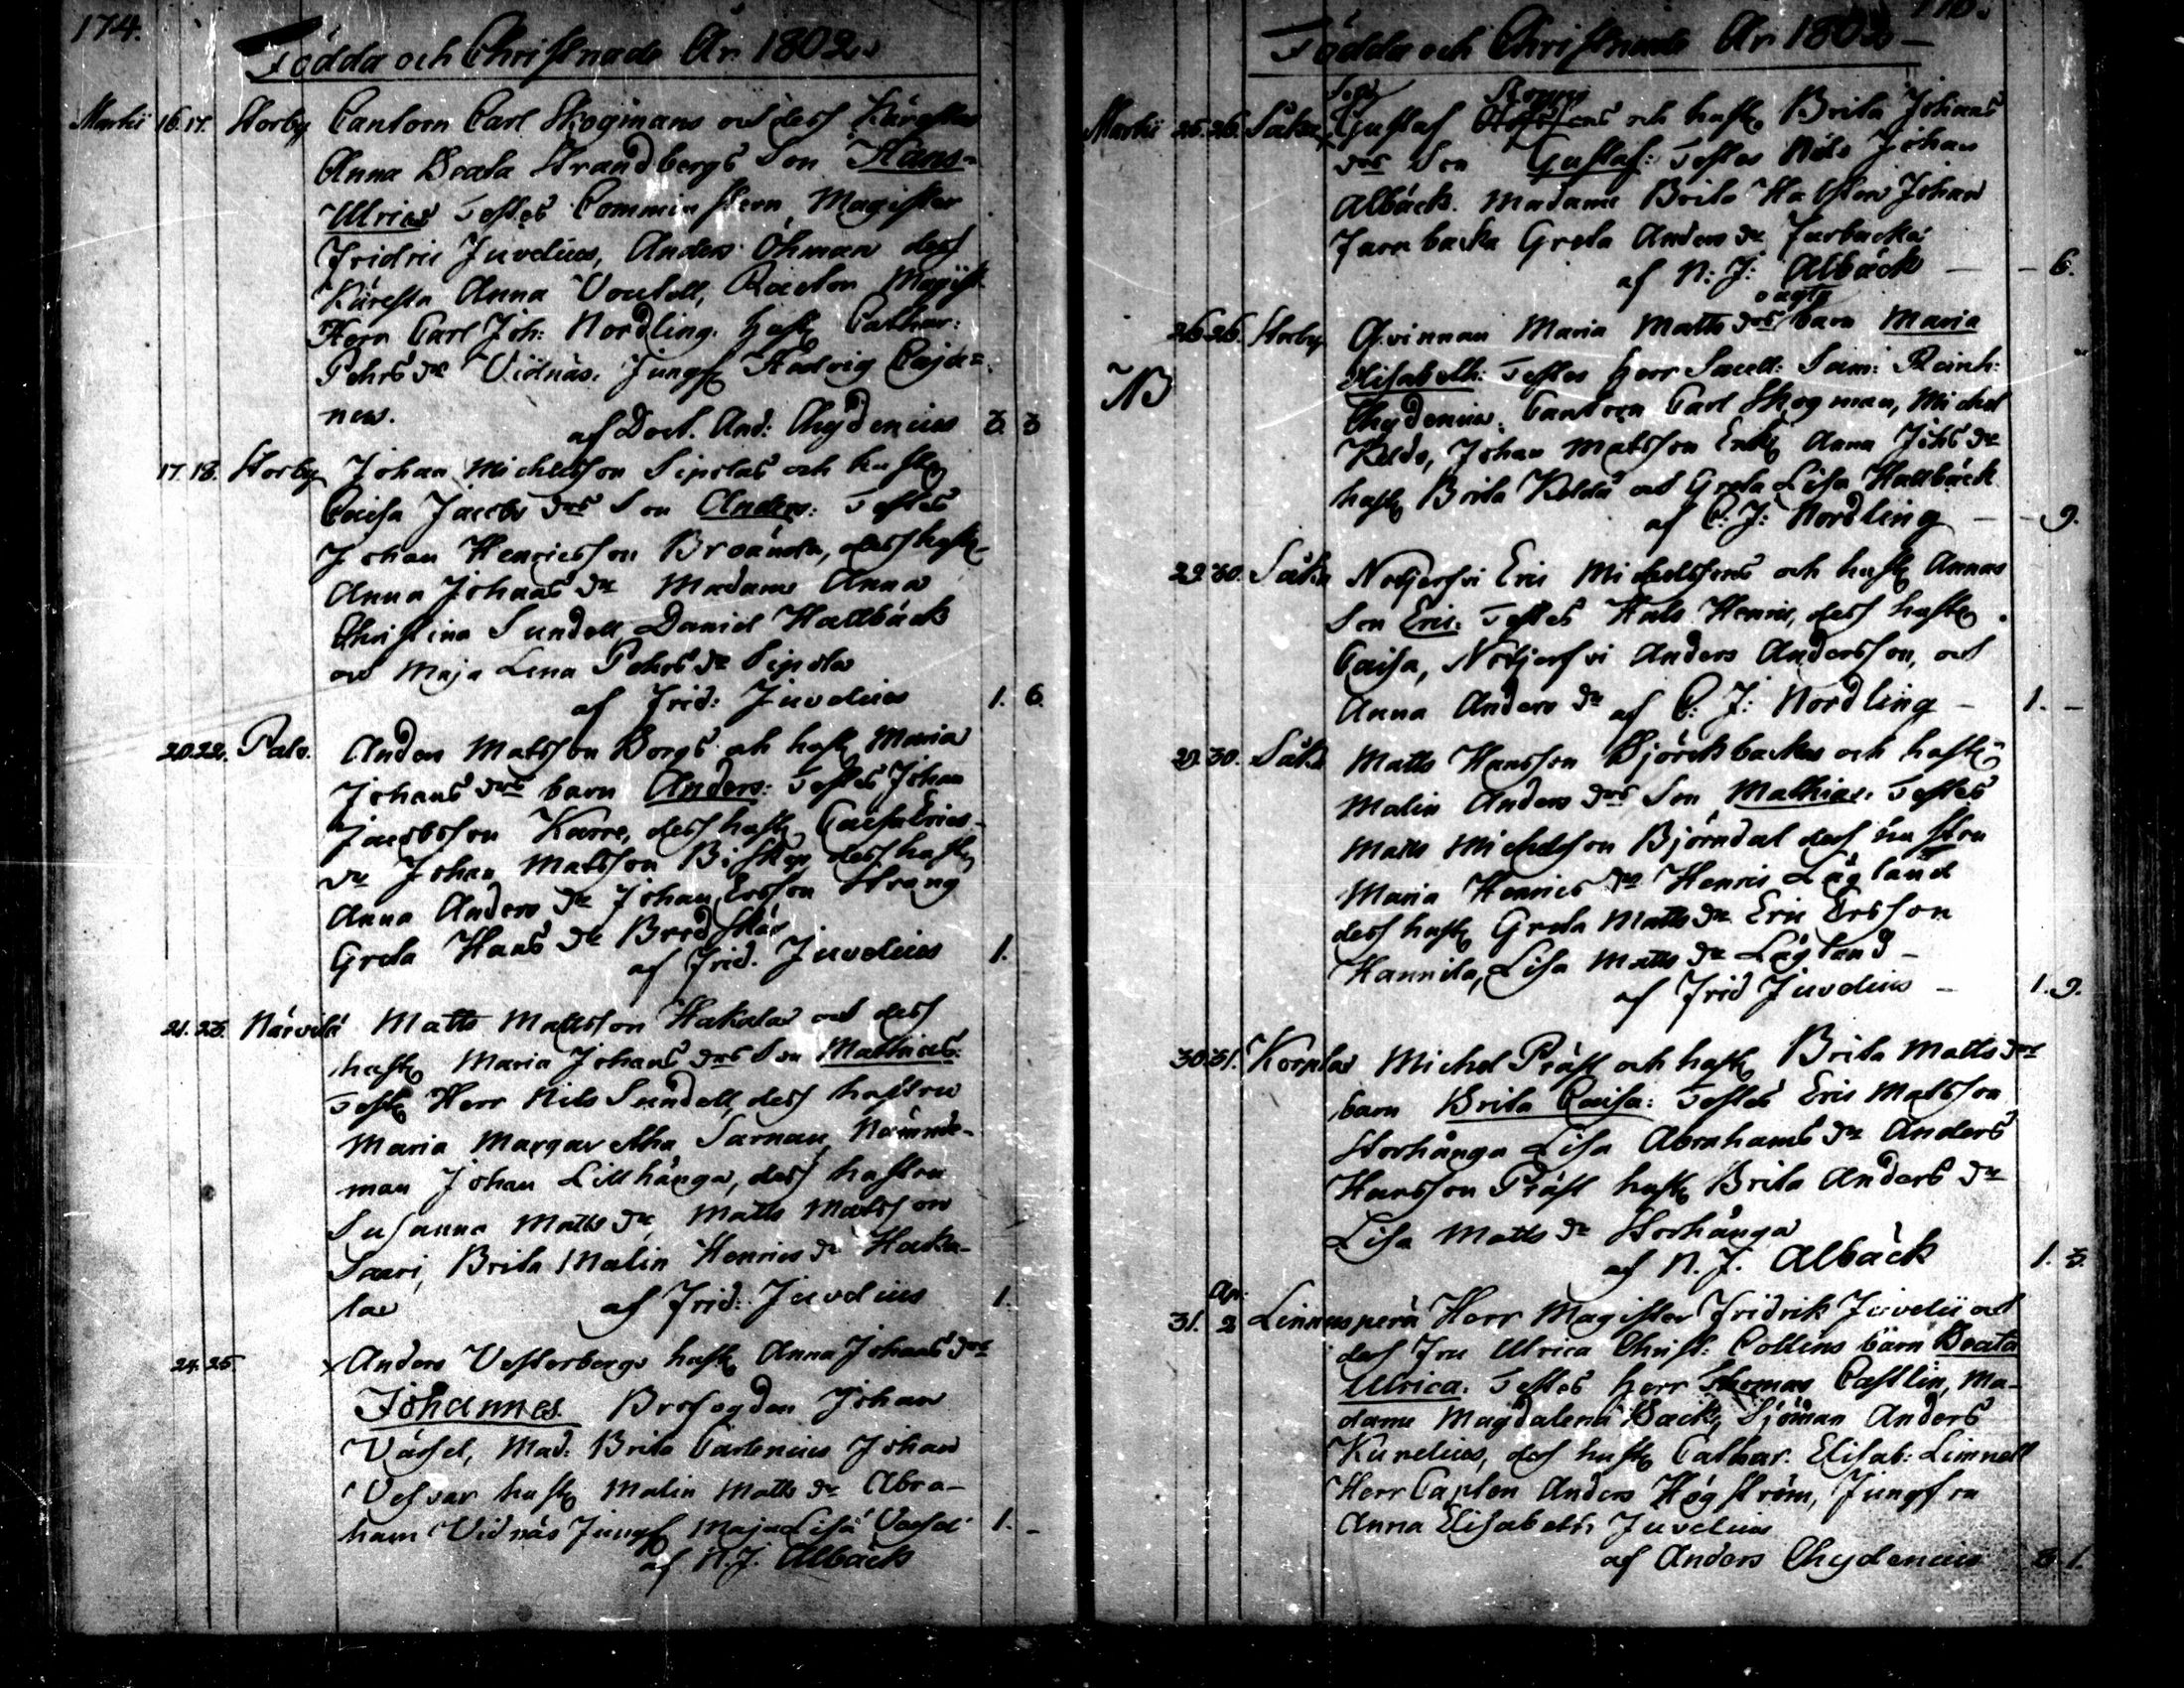 174.
Födda och Christnade År 1802.
Martii 16. 17. Storby Cantorn Carl Skogmans och dess Käresta
Anna Beata Strandbergs Son Hans
Ulric Testes Comministern, Magister
Fridric Juvelius, Anders Öhman dess
Käresta Anna Voutell, Rector Magist
Herr Carl Joh: Nordling. hust Cathar:
Pehrs dr Vidnäs. Jungf Hedvig Caja=
nus.
af Doct. And: Chydenius 3. 3
17. 18. Storby Johan Michelsson Sipolas och hust
Caisa Jacobs drs Son Anders: Testes
Johan Henricsson Broända, dess hust
Anna Johans dr Madame Anna
Christina Sundell, Daniel Hallbäck
och Maja Lena Pehrs dr Sipola
af Frid: Juvelius 1. 6.
20. 22. Palo. Anders Matsson Borgs och hust Maria
Johans drs barn Anders: Testes Johan
Jacobsson Karre, dess hust Caisa Erics
dr Johan Matsson Biskop dess hust
Anna Anders dr Johan Ersson Strang
Greta Hans dr Bredskär
af Frid. Juvelius 1.
21. 23. Närvilä Matts Mattsson Hakalas och dess
hust Maria Johans drs Son Mathias:
Test Herr Nils Sundell, dess hustru
Maria Margaretha Sarnau, Nämnde-
man Johan Lillhånga, dess hustru
Susanna Matts dr, Matts Matsson
Saari, Brita Malin Henrics dr Haka-
la af Frid: Juvelius 1.
24. 25 x Anders Vesterbergs hust Anna Johans drs
Johannes. Brofogden Johan
Väsel, Mad: Brita Carlenius Johan
Vesvar hust Malin Matts dr Abra-
ham Vidnäs Jungf Maja Lisa 1. -
af N. J. Albäck
Födda och Christnade År 1802 -
Martii 25. 26. Såka Gustaf och hust Brita Johans
drs Son Gustaf: Testes Nils Johan
Albäck. Madame Brita Johan
Furubacka Greta Anders dr Furbacka
af N: J: Albäck - - 6.
oägta
26 26. Storby Qvinnan Maria Matts drs barn Maria
NB
Elisabeth: Testes Herr Sacell: Sam: Reinh:
Chydenius, Cantorn Carl Skogman, Michel
Keldo, Johan Matsson Enk Anna Johs dr
hust Brita Keldå och Greta Lisa Hallbäck
af C: J: Nordling - - 9.
29. 30. Såka Nybjersvi Eric Michelssons och hust Annas
Son Eric. Testes Hans Henric, dess hust
Caisa, Nybjersvi Anders Andersson, och
Anna Anders dr af C: J: Nordling - 1. -
29. 30. Såka Matts Hansson Björckbackas och hust
Malin Anders drs Son Mathias. Testes
Matts Michelsson Björndal dess hustru
Maria Henrics dr Henric Lågland
dess hust Greta Matts dr Eric Ersson
Kannila, Lisa Matts dr Lågland -
af Frid Juvelius - 1. 9.
30. 31. Korpla Michel Präst och hust Brita Matts drs
barn Brita Caisa: Testes Eric Matsson
Storhånga Lisa Abrahams dr Anders
Hansson Präst hust Brita Anders dr
Lisa Matts dr Storhånga
af N. J. Albäck 1. 3.
Apr:
31. 2 Linnusperä Herr Magister Fridrik Juvelii och
dess Fru Ulrica Christ: Collins barn Beata
Ulrica. Testes Herr Thomas Castlin, Ma-
dame Magdalena Back, Sjöman Anders
Kurelius, dess hust Cathar. Elisab: Limnell
Herr Capten Anders Högström, Jungfru
Anna Elisabeth Juvelius
af Anders Chydenius 3. 1.